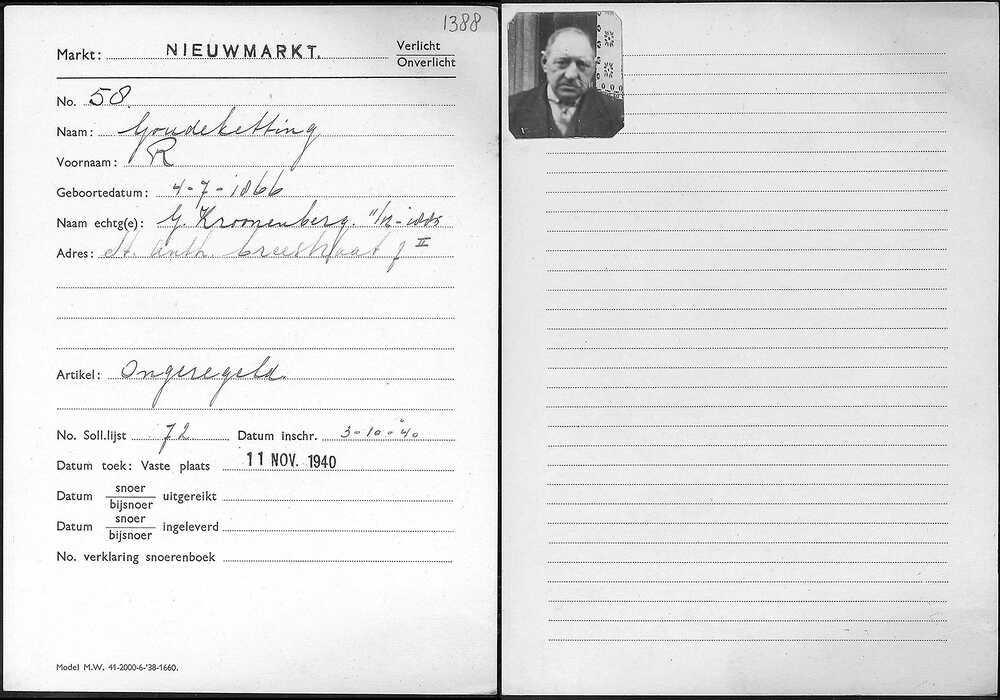 1388
Markt: NIEUWMARKT. Verlicht
Onverlicht
No. 58
Naam: Goudeketting
Voornaam: R
Geboortedatum: 4-7-1866
Naam echtg(e): G. Kroonenberg.
Adres: St. Anth. breestraat II
Artikel: Ongeregeld
No. Soll.lijst 72 Datum inschr. 3-10-40
Datum toek: Vaste plaats 11 NOV. 1940
Datum snoer
bijsnoer uitgereikt
Datum snoer
bijsnoer ingeleverd
No. verklaring snoerenboek
Model M.W. 41-2000-6-'38-1660.